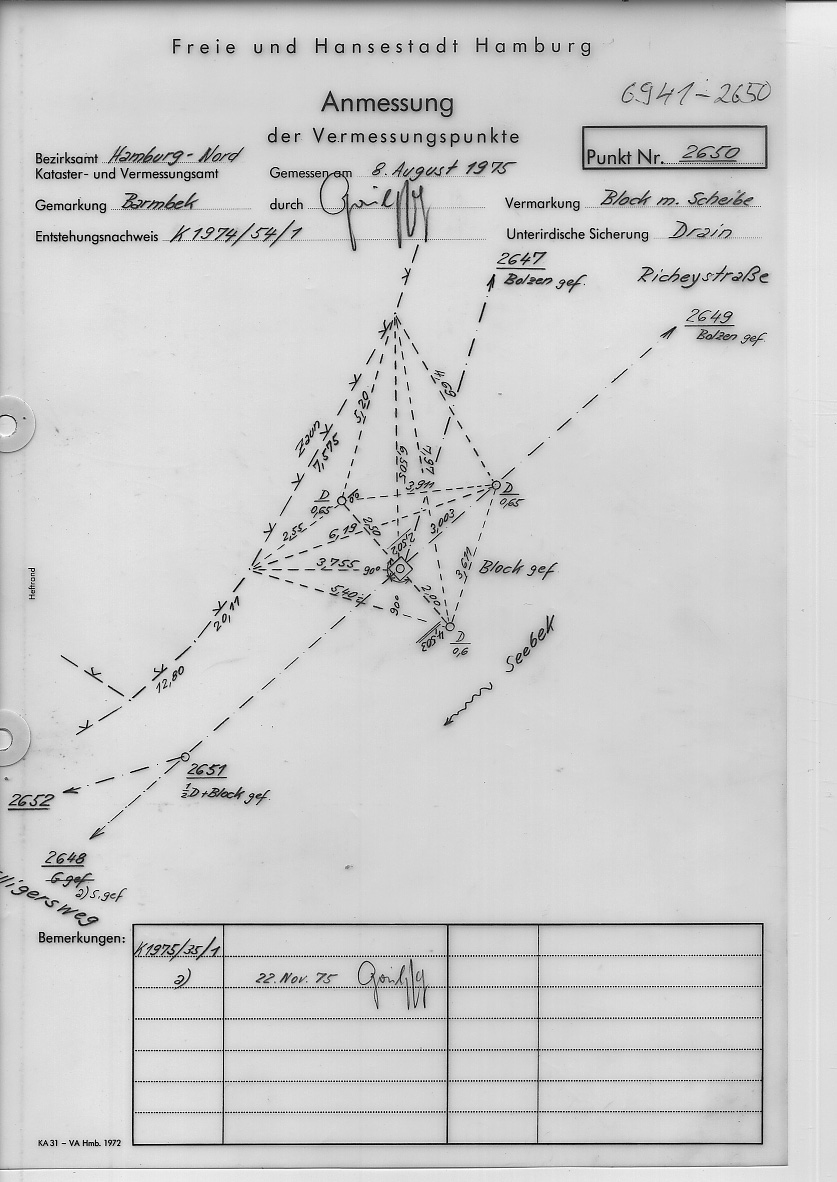 Freie und Hansestadt Hamburg
6941-2650
Anmessung
der Vermessungspunkte
Punkt Nr. 2650
Bezirksamt Hamburg-Nord
Kataster- und Vermessungsamt
Gemessen am 8. August 1975
Gemarkung Barmbek
durch
Vermarkung Block m. Scheibe
Entstehungsnachweis K1974/54/1
Unterirdische Sicherung Drain
2647
Bolzen gef.
Richeystraße
2649
Bolzen gef.
4,69
5,20
Zaun
7,575
6,505
7,97
3,911
D
0,65
D
0,65
2,55
6,19
2,50
2,502
3,003
3,755
90°
3,611
Block gef
5,40
90°
2,00
4,503
D
0,6
20,11
Seebek
12,80
2651
½D+Block gef.
2652
2648
G gef
a) S. gef
Bemerkungen:
K1975/35/1
a)
22. Nov. 75
Heftrand
KA 31 – VA Hmb. 1972